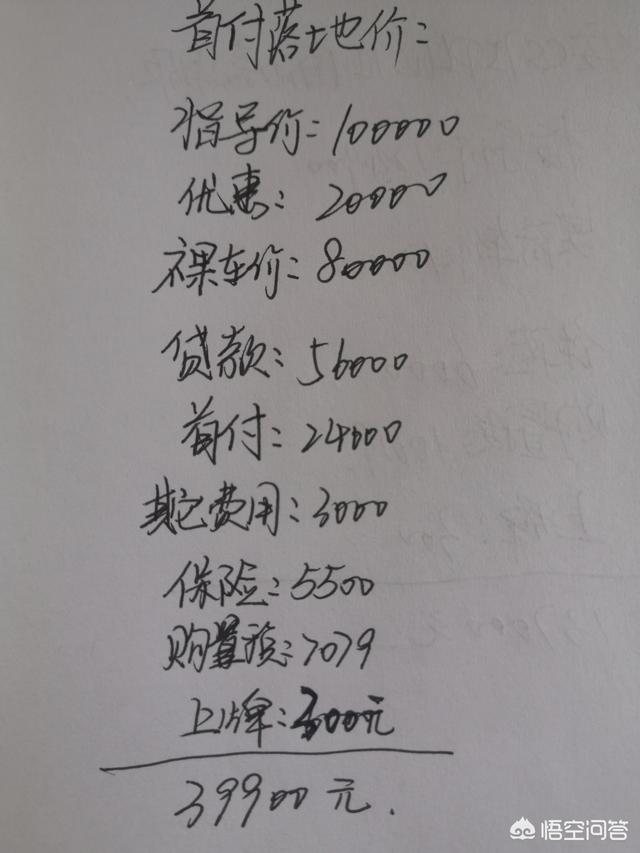 首付落地价：
指导价：100000
优惠：20000
裸车价：80000
贷款：56000
首付：24000
其它费用：3000
保险：5500
购置税：7079
上牌：300元
39900元.
悟空问答